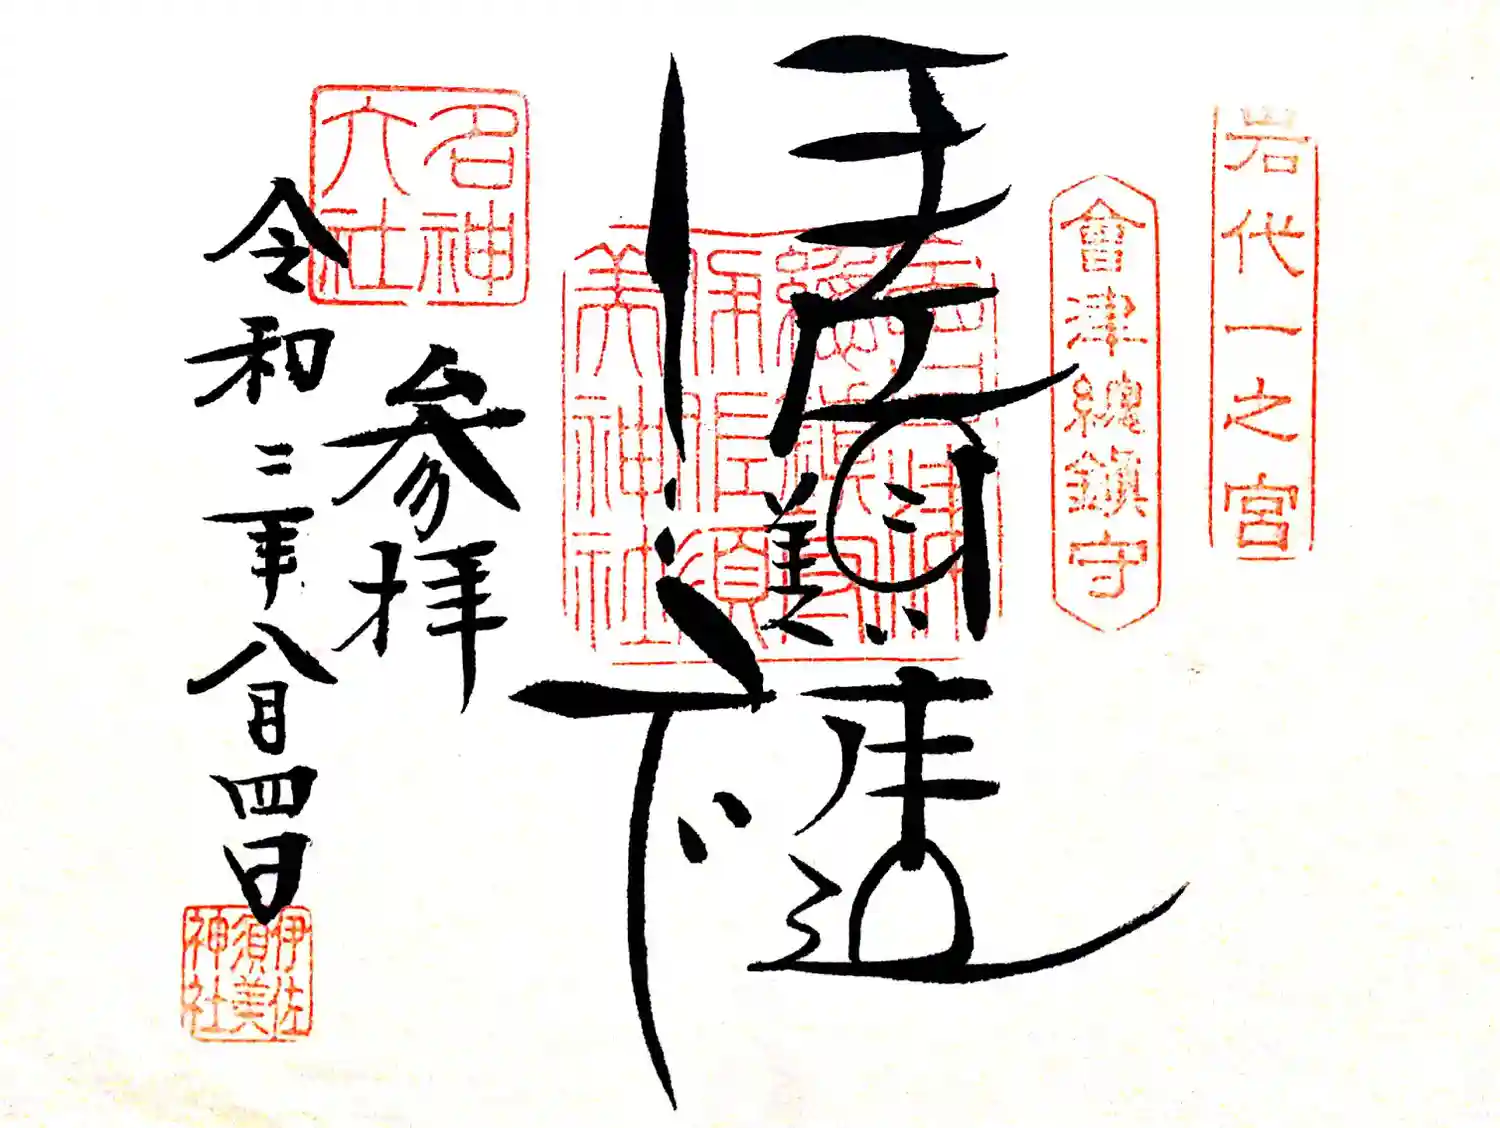 岩代一之宮
會津總鎮守
會津
總鎮守
伊佐須
美神社
名神
大社
参拝
令和三年八月四日
伊佐
須美
神社